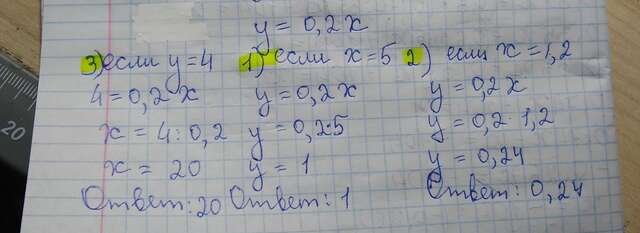 y = 0,2x
3) если y=4
4=0,2·x
x = 4:0,2
x = 20
Ответ: 20
1) если x=5
y = 0,2x
y = 0,2·5
y = 1
Ответ: 1
2) если x = 1,2
y = 0,2x
y = 0,2·1,2
y = 0,24
Ответ: 0,24
20